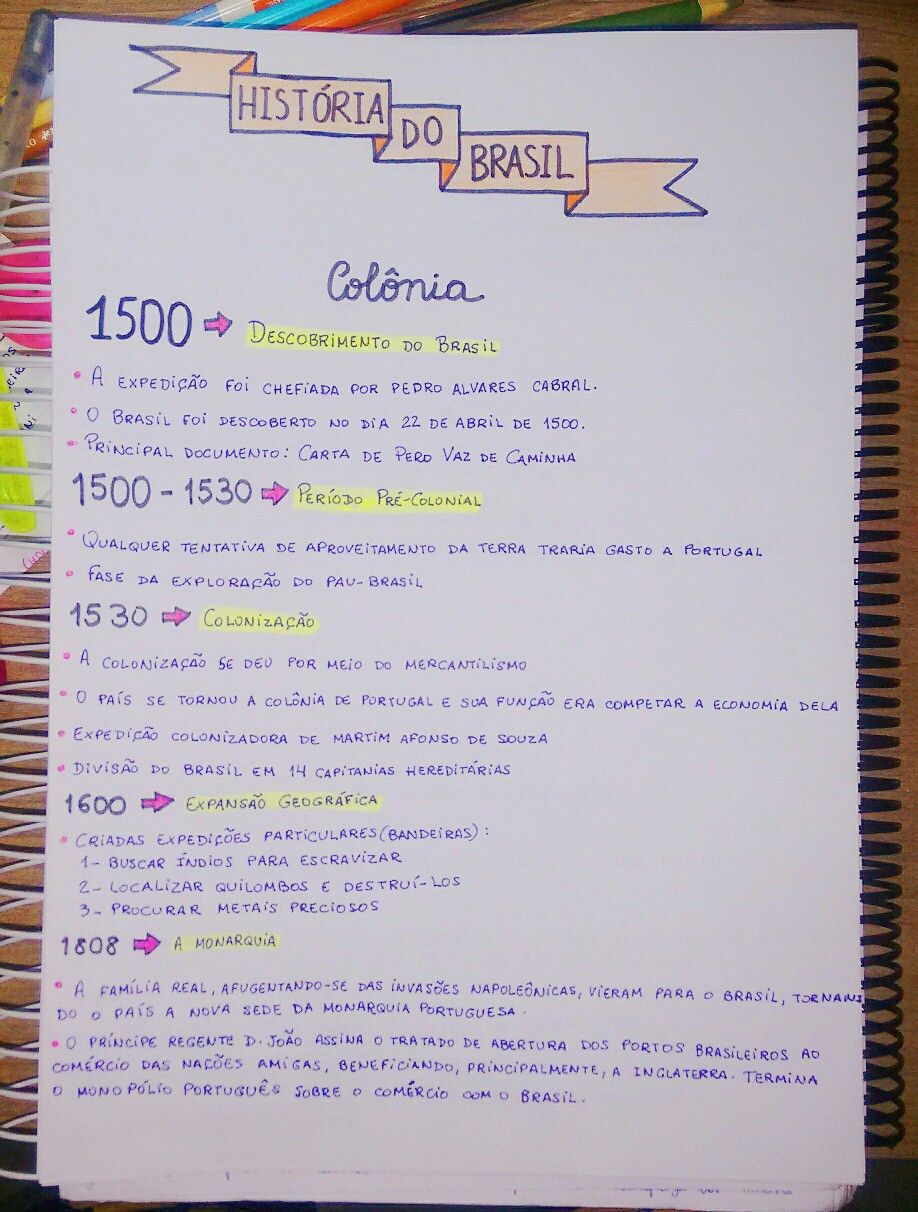 HISTÓRIA
DO
BRASIL
Colônia
1500 ➡ DESCOBRIMENTO DO BRASIL
• A EXPEDIÇÃO FOI CHEFIADA POR PEDRO ALVARES CABRAL.
• O BRASIL FOI DESCOBERTO NO DIA 22 DE ABRIL DE 1500.
• PRINCIPAL DOCUMENTO: CARTA DE PERO VAZ DE CAMINHA
1500 - 1530 ➡ PERÍODO PRÉ-COLONIAL
• QUALQUER TENTATIVA DE APROVEITAMENTO DA TERRA TRARIA GASTO A PORTUGAL
• FASE DA EXPLORAÇÃO DO PAU-BRASIL
1530 ➡ COLONIZAÇÃO
• A COLONIZAÇÃO SE DEU POR MEIO DO MERCANTILISMO
• O PAÍS SE TORNOU A COLÔNIA DE PORTUGAL E SUA FUNÇÃO ERA COMPETAR A ECONOMIA DELA
• EXPEDIÇÃO COLONIZADORA DE MARTIM AFONSO DE SOUZA
• DIVISÃO DO BRASIL EM 14 CAPITANIAS HEREDITÁRIAS
1600 ➡ EXPANSÃO GEOGRÁFICA
• CRIADAS EXPEDIÇÕES PARTICULARES (BANDEIRAS):
1- BUSCAR ÍNDIOS PARA ESCRAVIZAR
2- LOCALIZAR QUILOMBOS E DESTRUÍ-LOS
3- PROCURAR METAIS PRECIOSOS
1808 ➡ A MONARQUIA
• A FAMÍLIA REAL, AFUGENTANDO-SE DAS INVASÕES NAPOLEÔNICAS, VIERAM PARA O BRASIL, TORNAN-
DO O PAÍS A NOVA SEDE DA MONARQUIA PORTUGUESA.
• O PRÍNCIPE REGENTE D. JOÃO ASSINA O TRATADO DE ABERTURA DOS PORTOS BRASILEIROS AO
COMÉRCIO DAS NAÇÕES AMIGAS, BENEFICIANDO, PRINCIPALMENTE, A INGLATERRA. TERMINA
O MONOPÓLIO PORTUGUÊS SOBRE O COMÉRCIO COM O BRASIL.